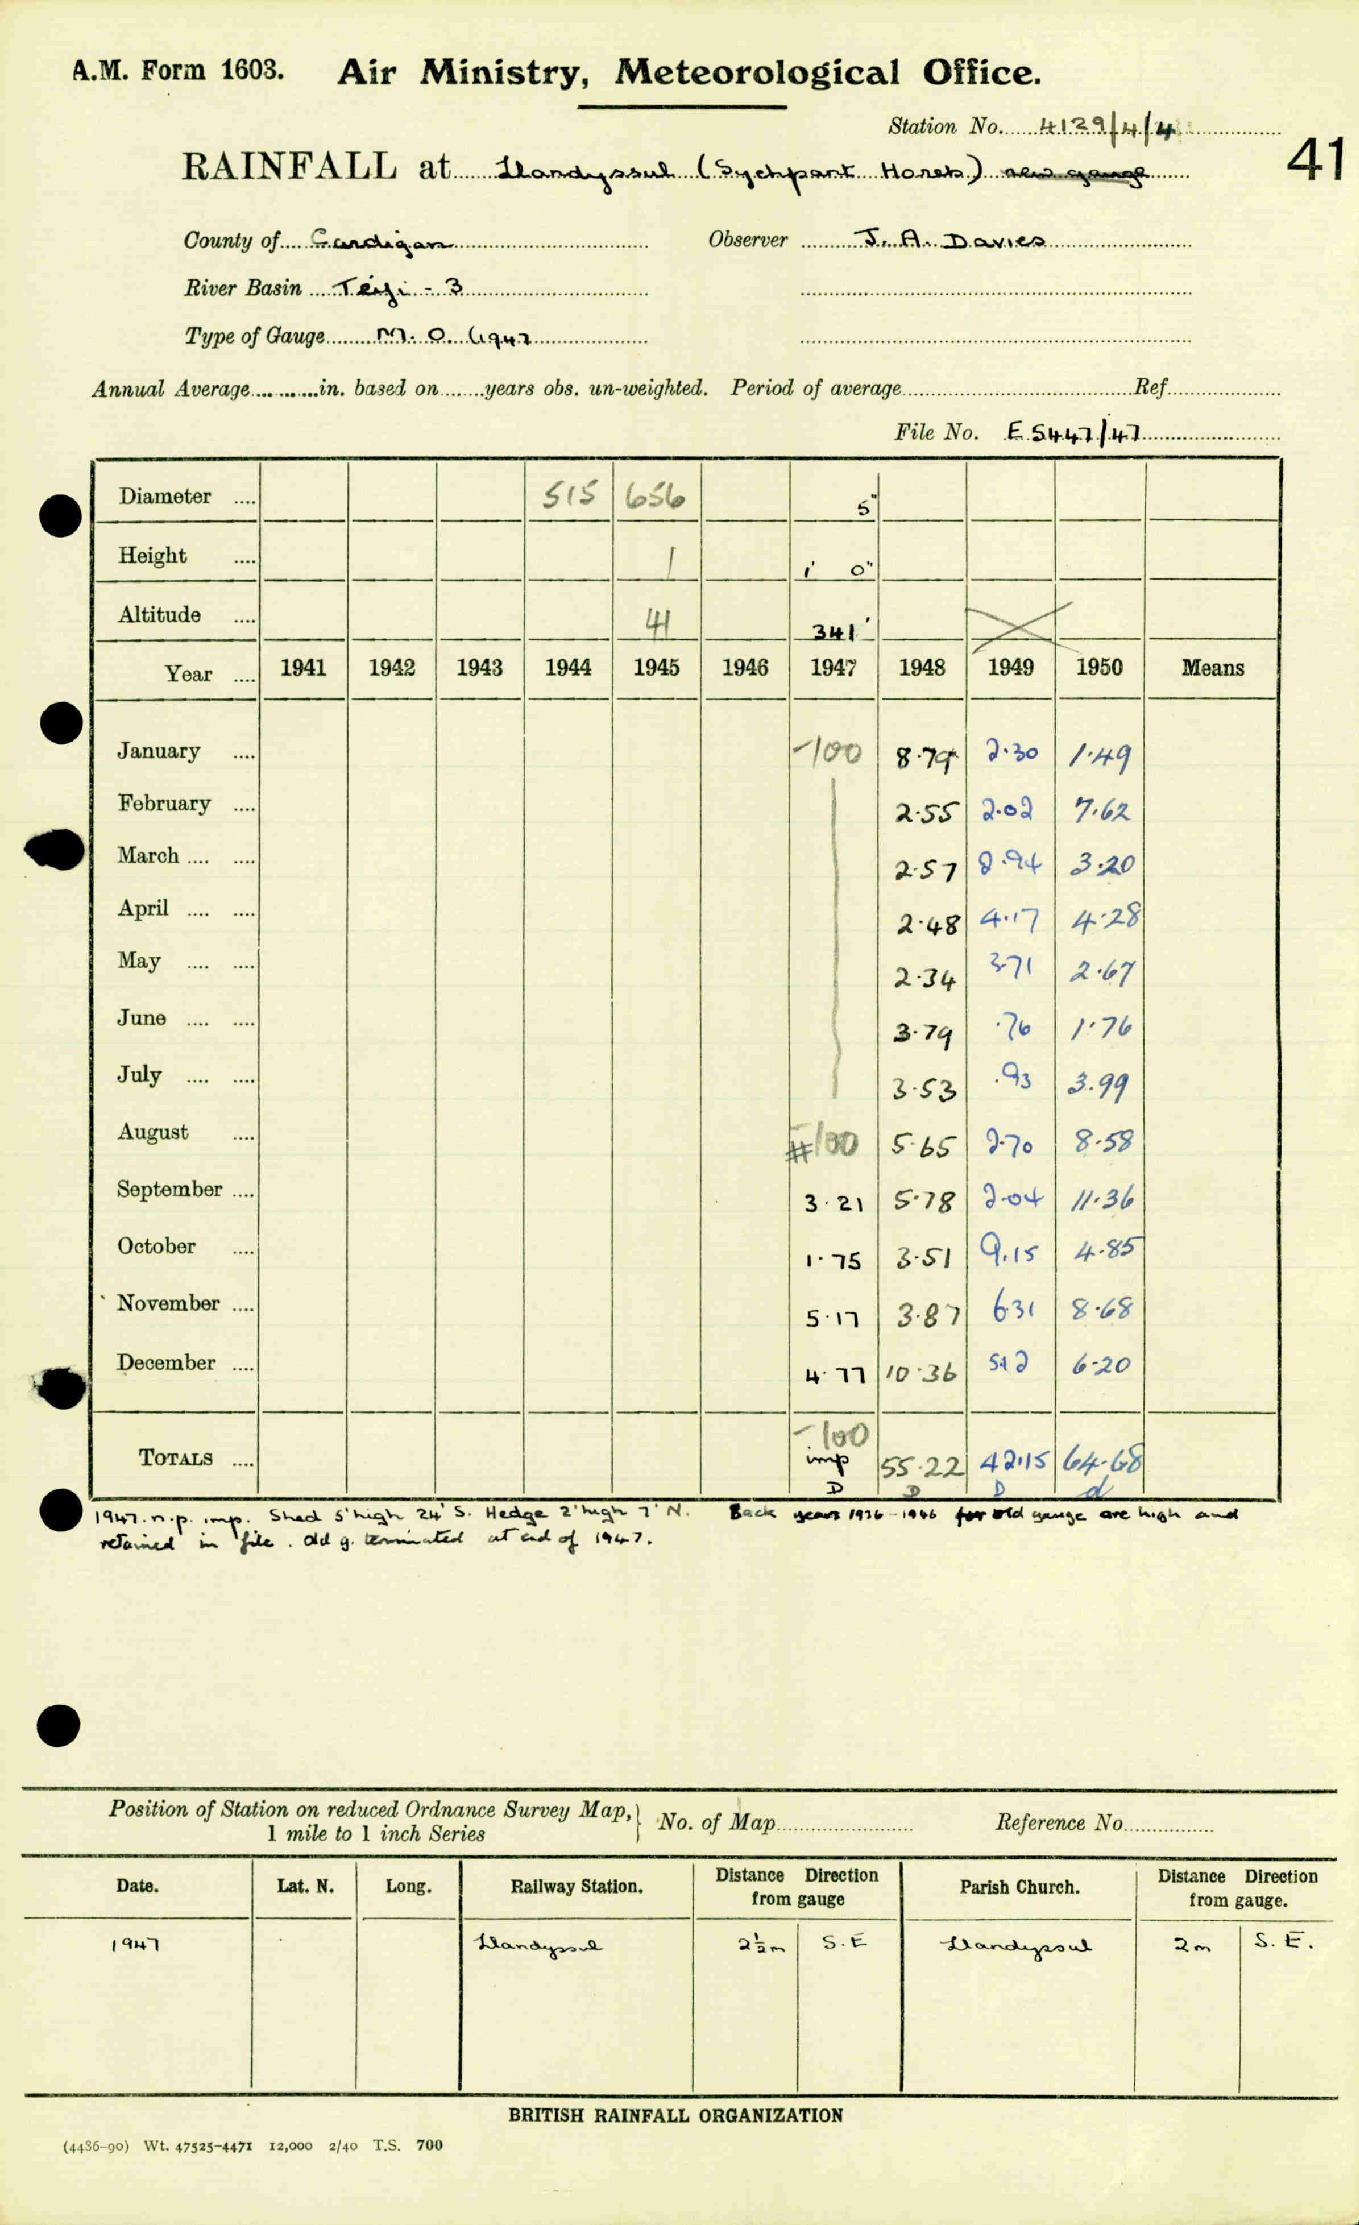 A.M. Form 1603. Air Ministry, Meteorological Office.
Station No. 4129/4/4
41
RAINFALL at Llandyssul (Sychpant Horeb) new gauge
County of Cardigan Observer J. A. Davies
River Basin Teifi - 3
Type of Gauge M. O. (1947
Annual Average in. based on years obs. un-weighted. Period of average Ref.
File No. E 5447/47
Diameter 515 656 5"
Height 1 1' 0"
Altitude 41 341'
Year 1941 1942 1943 1944 1945 1946 1947 1948 1949 1950 Means
January -100 8.79 2.30 1.49
February 2.55 2.02 7.62
March 2.57 2.94 3.20
April 2.48 4.17 4.28
May 2.34 3.71 2.67
June 3.79 .76 1.76
July 3.53 .93 3.99
August #-100 5.65 2.70 8.58
September 3.21 5.78 2.04 11.36
October 1.75 3.51 9.15 4.85
November 5.17 3.87 6.31 8.68
December 4.77 10.36 5.12 6.20
-100
TOTALS imp 55.22 42.15 64.68
D D D d
1947. n.p. imp. Shed 5' high 24' S. Hedge 2' high 7' N. Back years 1936-1946 for old gauge are high and
retained in file. Old g. terminated at end of 1947.
Position of Station on reduced Ordnance Survey Map, No. of Map Reference No.
1 mile to 1 inch Series
Date. Lat. N. Long. Railway Station. Distance Direction from gauge Parish Church. Distance Direction from gauge.
1947 Llandyssul 2½m S.E Llandyssul 2m S.E.
BRITISH RAINFALL ORGANIZATION
(4436-90) Wt. 47525-4471 12,000 2/40 T.S. 700